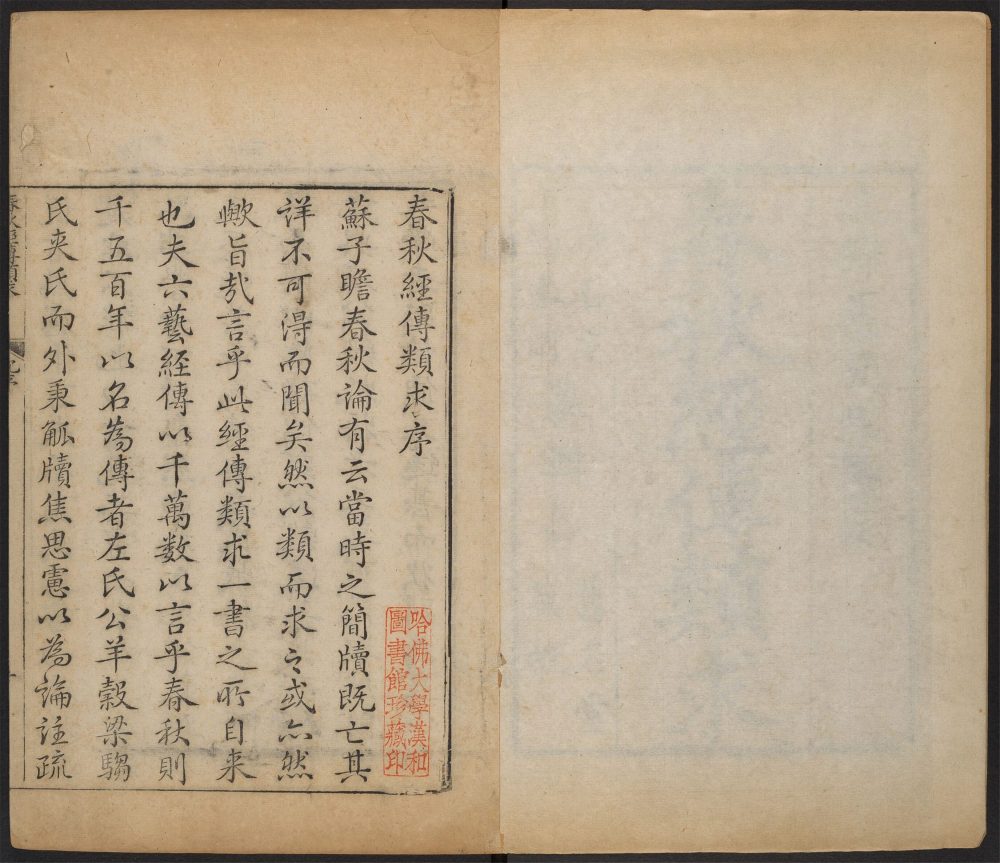 春秋經傳類求序
蘇子瞻春秋論有云當時之簡牘既亡其
詳不可得而聞矣然以類而求之或亦然
歟旨哉言乎此經傳類求一書之所自来
也夫六藝経傳以千萬数以言乎春秋則
千五百年以名為傳者左氏公羊穀梁騶
氏夾氏而外秉觚牘焦思慮以為論註疏
哈佛大學漢和
圖書館珍藏印